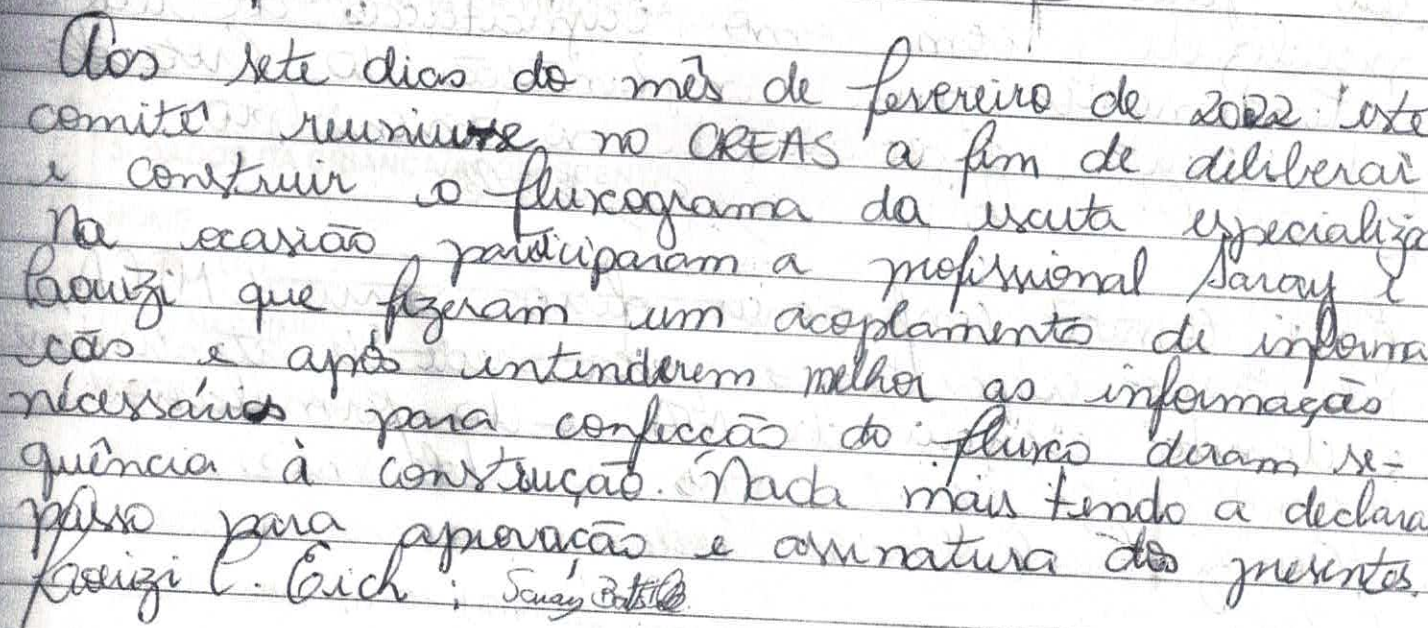 Aos sete dias do mês de fevereiro de 2022 este
comitê reuniu-se no CREAS a fim de deliberar
e construir o fluxograma da escuta especializa
Na ocasião participaram a profissional Saray e
que fizeram um acoplamento de informa
ção e após entenderem melhor as informação
necessárias para confecção do fluxo deram se-
quência à construção. Nada mais tendo a declara
passo para aprovação e assinatura dos presentes.
C. Eich ; Saray